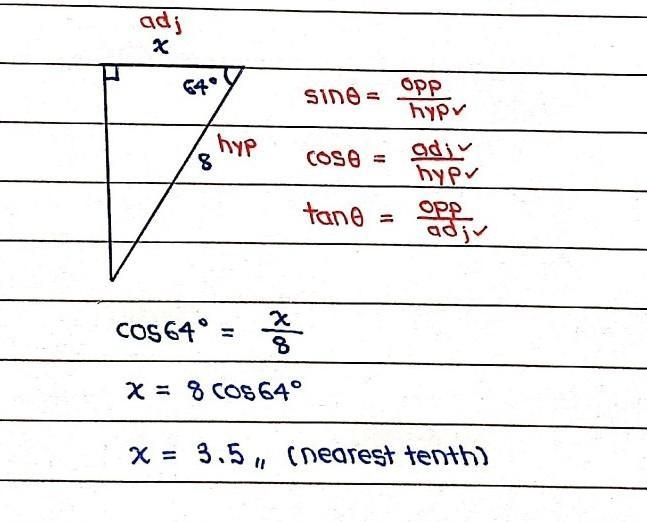 adj
x
64°
hyp
8
sinθ = opp/hyp✓
cosθ = adj✓/hyp✓
tanθ = opp/adj✓
cos64° = x/8
x = 8 cos64°
x = 3.5,, (nearest tenth)